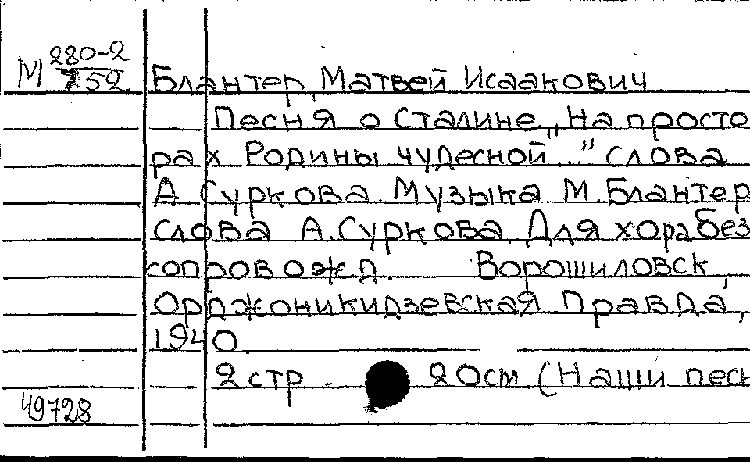 М 280-2
752
Блантер, Матвей Исаакович
Песня о Сталине „На просто
рах Родины чудесной..." Слова
А Суркова. Музыка М. Блантер
Слова А. Суркова. Для хора без
сопровожд. Ворошиловск,
Орджоникидзевская Правда,
1940
2 стр. 20см (Наши песн
49728